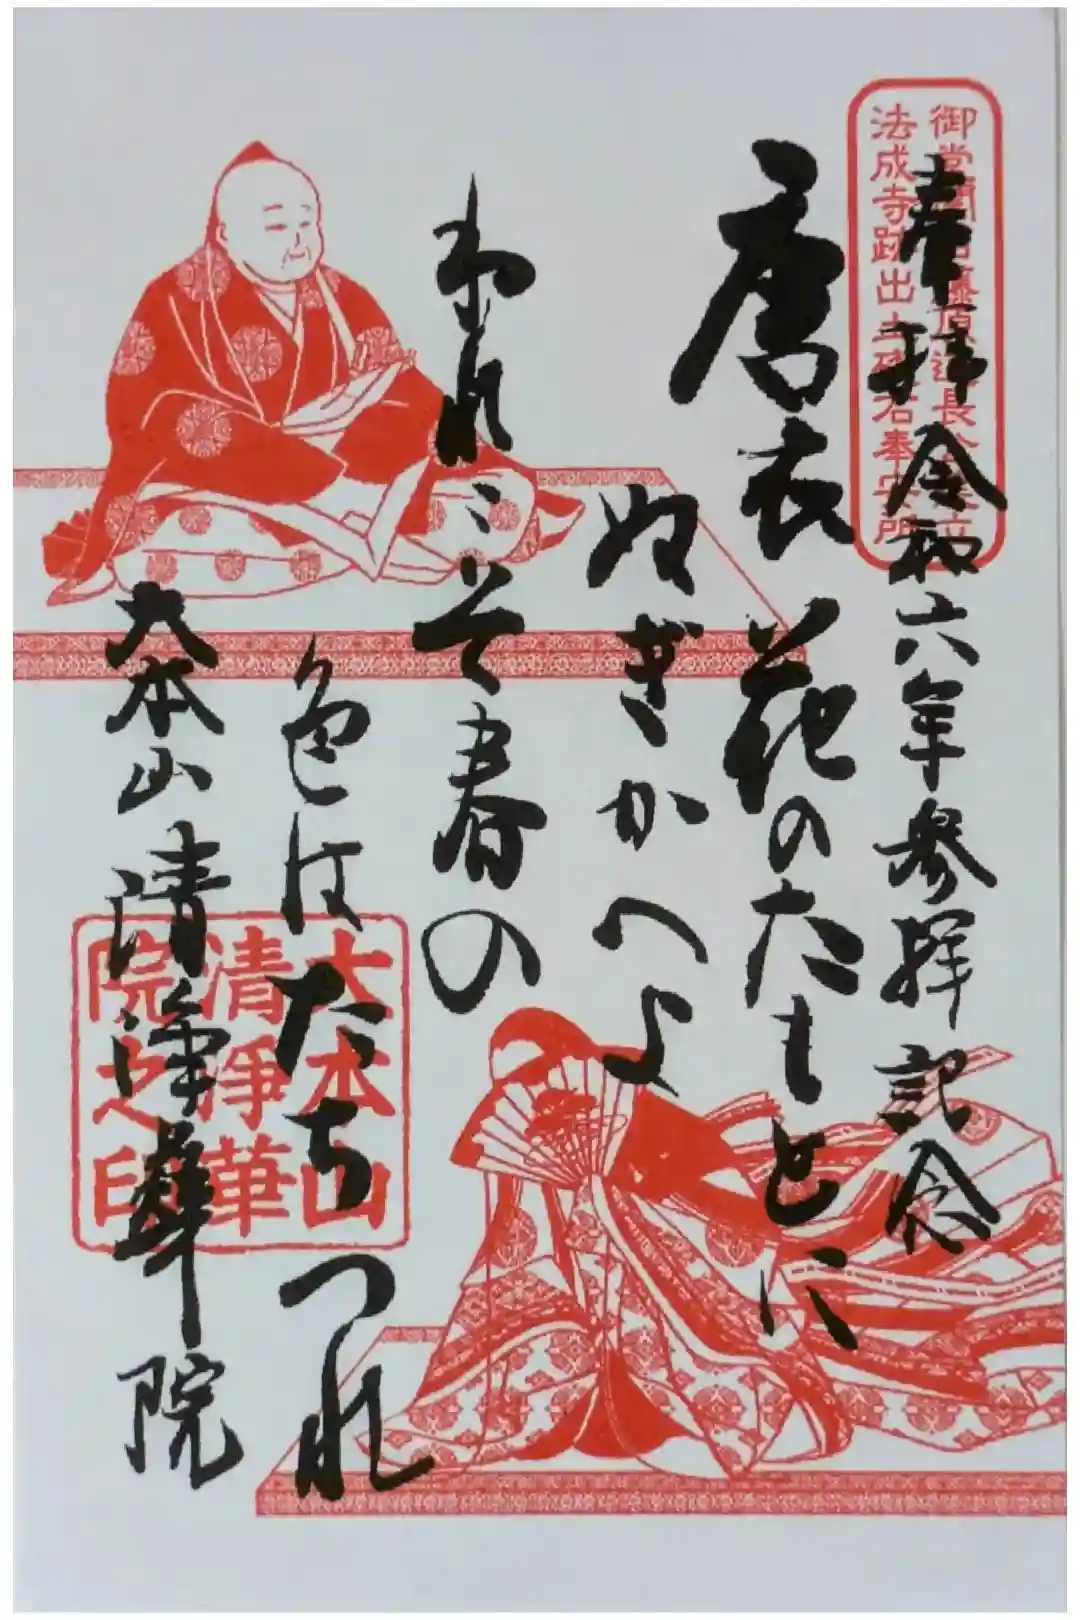 御堂關白藤原道長公建立
法成寺跡出土礎石奉安所
奉拝 令和六年参拝記念
唐衣 花のたもとに
ぬぎかへよ
われこそ春の
色はたちつれ
大本山 清浄華院
大本山
清淨華
院之印